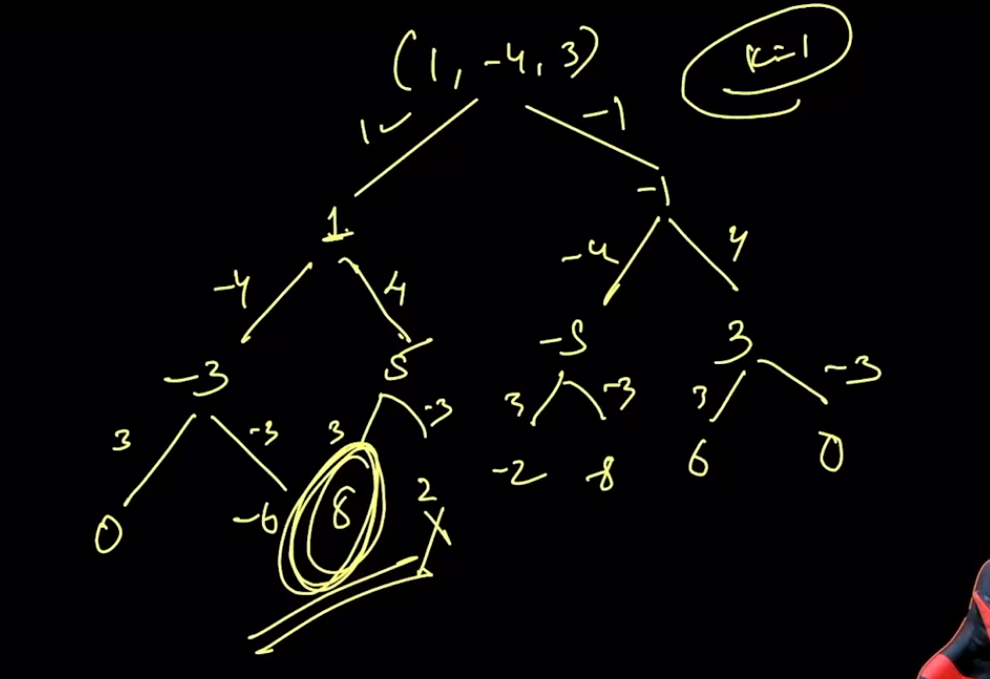 (1, -4, 3)
K=1
1 ✓
-1
1
-1
-4
4
-4
4
-3
5
-5
3
3
-3
3
-3
3
-3
3
-3
0
-6
8
2
-2
-8
6
0